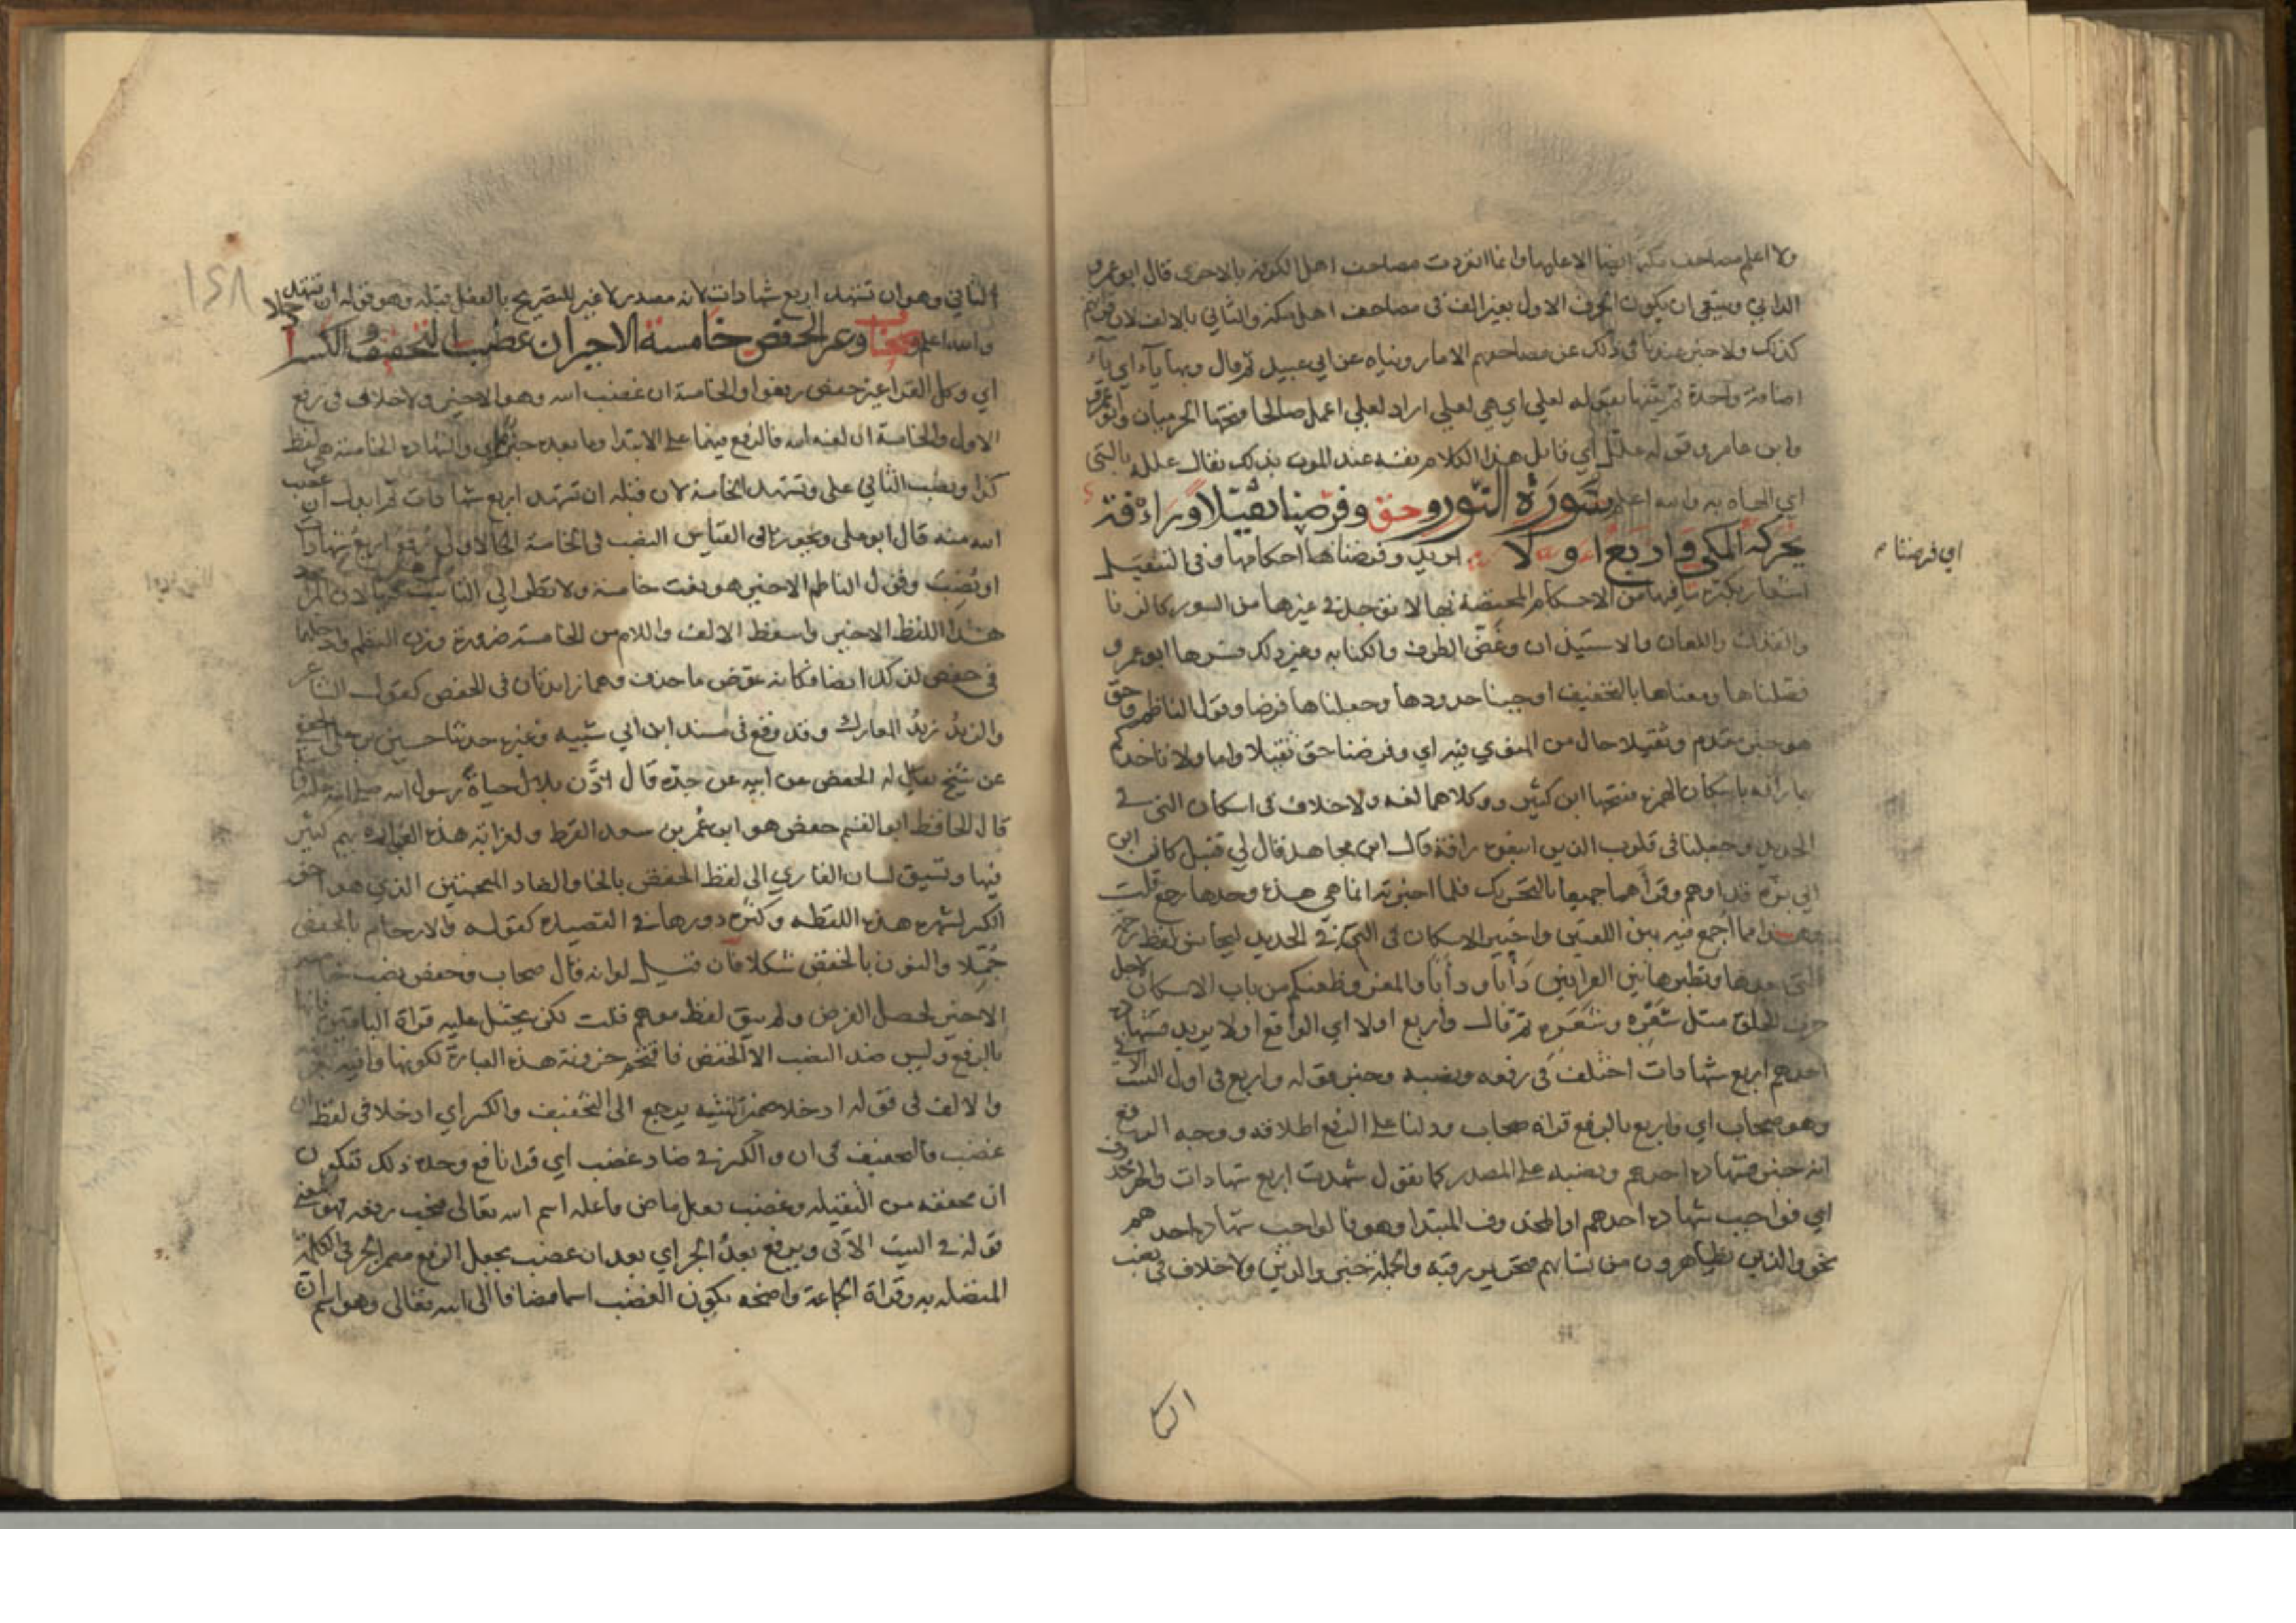 ولا اعلم مصاحف مكة ايضا الا عليها وانما انفردت مصاحف اهل الكوفة بالاخرى قال ابو عمرو
الداني وينبغي ان يكون الحرف الاول بغير الف في مصاحف اهل مكة والثاني بالالف لان قراتهم
كذلك ولا خبر عندنا في ذلك عن مصاحفهم الا ما رويناه عن ابي عبيد ثم قال وبها ياء اي ياء
اضافة واحدة ثم بينها بقوله لعلي اي هي لعلي اراد لعلي اعمل صالحا فتحها الحرميان وابو عمرو
وابن عامر وقوله علل اي قايل هذا الكلام نفسه عند الموت بذلك يقال علله بالشي
اي الهاه به والله اعلم سورة النور وحق وفرضنا ثقيلا ورافة
يحركه المكي واربع اولا يريد وفرضناها احكامها وفي التثقيل
اي فرضنا
اشعار بكثرة ما فيها من الاحكام المختصة بها لا توجد في غيرها من السور كالزنا
والقذف واللعان والاستيذان وغض الطرف والكتابة وغير ذلك فسرها ابو عمرو
فصلناها ومعناها بالتخفيف اوجبنا حدودها وجعلناها فرضا وقول الناظم وحق
هو خبر مقدم وثقيلا حال من المنوي فيه اي وفرضنا حق ثقيلا واما ولا تاخذكم
بها رافة باسكان الهمزة فتحها ابن كثير وكلاهما لغة ولا خلاف في اسكان التي في
الحديد وجعلنا في قلوب الذين اتبعوه رافة قال ابن مجاهد قال لي قنبل كان ابن
ابي بزة قد اوهم وقراهما جميعا بالتحريك فلما اخبرته انما هي هذه وحدها رجع قلت
وهذا مما اجمع فيه بين اللغتين واختير الاسكان في التي في الحديد ليجانس لفظ رحمة
التي بعدها ونظير هاتين القرايتين دأبا ودأبا والمعز وظعنكم من باب الاسكان لاجل
حرف الحلق مثل شعره وشعره ثم قال واربع اولا اي الواقع اولا يريد فشهادة
احدهم اربع شهادات اختلف في رفعه ونصبه وخبر قوله واربع في اول البيت الاتي
وهو صحاب اي واربع بالرفع قراه صحاب ودلنا على الرفع اطلاقه ووجه الرفع
انه خبر فشهادة احدهم ونصبه على المصدر كما تقول شهدت اربع شهادات والخبر محذوف
اي فواجب شهادة احدهم او المحذوف المبتدا وهو فالواجب شهادة احدهم
نحو والذين يظاهرون من نسايهم فتحرير رقبة والجملة خبر والذين ولا خلاف في نصب
١٤٨
الثاني وهو ان تشهد اربع شهادات لانه مصدر لا غير للتصريح بالفعل قبله وهو قوله ان تشهد
والله اعلم صحاب وغير الحفص خامسة الاخير ان غضب التخفيف والكسر ادخلا
اي وكل القرا غير حفص رفعوا والخامسة ان غضب الله وهو الاخير ولا خلاف في رفع
الاول والخامسة ان لعنة الله فالرفع فيهما على الابتدا وما بعده خبر اي والشهادة الخامسة هي لفظ
كذا ونصب الثاني على وتشهد الخامسة لان قبله ان تشهد اربع شهادات ثم ابدل ان غضب
الله منه قال ابو علي ويجوز في القياس النصب في الخامسة الاولى رفع اربع شهادات
او نصب وقول الناظم الاخير هو نعت خامسة ولا نظر الى التانيث لان المراد
هذا اللفظ الاخير واسقط الالف واللام من الخامسة ضرورة وزن النظم وادخلهما
في حفص لذلك ايضا فكانه عوض ما حذف وهما زايدتان في الحفص كقول الشاعر
والزيد زيد المعارك وقد وقع في مسند ابن ابي شيبة وغيره حدثنا حسين بن علي الجعفي
عن شيخ يقال له الحفص عن ابيه عن جده قال اذن بلال حياة رسول الله صلى الله عليه
قال الحافظ ابو القسم حفص هو ابن عمر بن سعد القرظ ولغرابة هذه العبارة يهم كثير
فيها وتسبق لسان القاري الى لفظ الخفض بالخا والضاد المعجمتين الذي هو اخو
الكسر لشهرة هذه اللفظة وكثرة دورها في القصيدة كقوله والارحام بالخفض
جملا والنون بالخفض شكلا فان قيل لو انه قال صحاب وحفص نصب خامسة
الاخير لحصل الغرض ولم يبق لفظ موهم قلت لكن يختل عليه قراة الباقين فانها
بالرفع وليس ضد النصب الا الخفض فاقتحم حزونة هذه العبارة لكونها وافية
والالف في قوله ادخلا ضمير تثنية يرجع الى التخفيف والكسر اي ادخلا في لفظ ان
غضب فالتخفيف في ان والكسر في ضاد غضب اي قرا نافع وحده ذلك فتكون
ان مخففة من الثقيلة وغضب فعل ماض فاعله اسم الله تعالى فيجب رفعه فهو معنى
قوله في البيت الاتي ويرفع بعد الجر اي بعد ان غضب يجعل الرفع موضع الجر في الكلمة
المتصلة به وقراة الجماعة واضحة يكون الغضب اسما مضافا الى الله تعالى وهو اسم ان